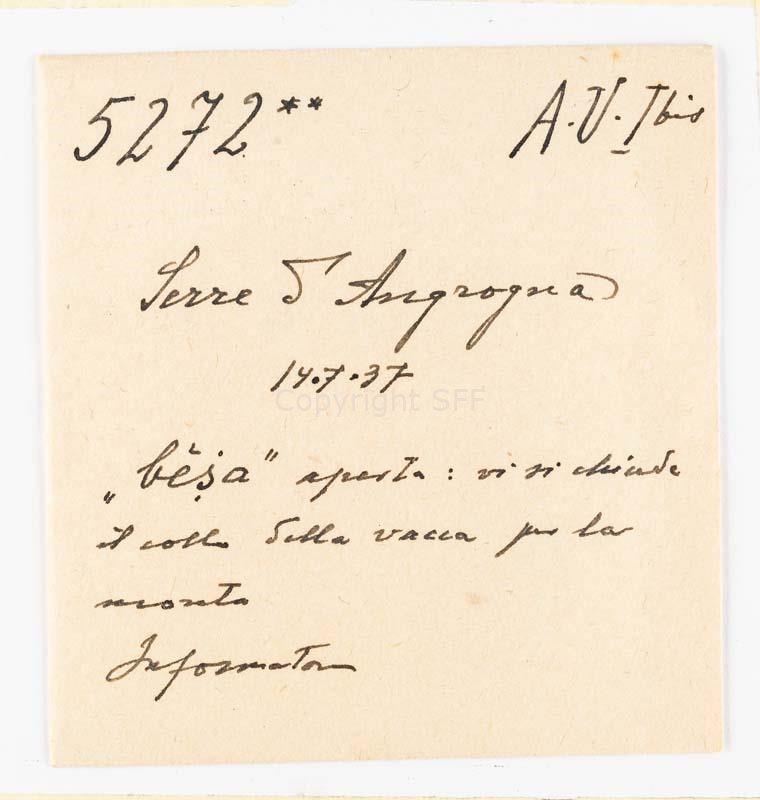 5272** A.V. I bis
Serre d'Angrogna
14.7.37
Copyright SFF
„bẹ̆ṡa" aperta: vi si chiude
il collo della vacca per la
monta
Informatore